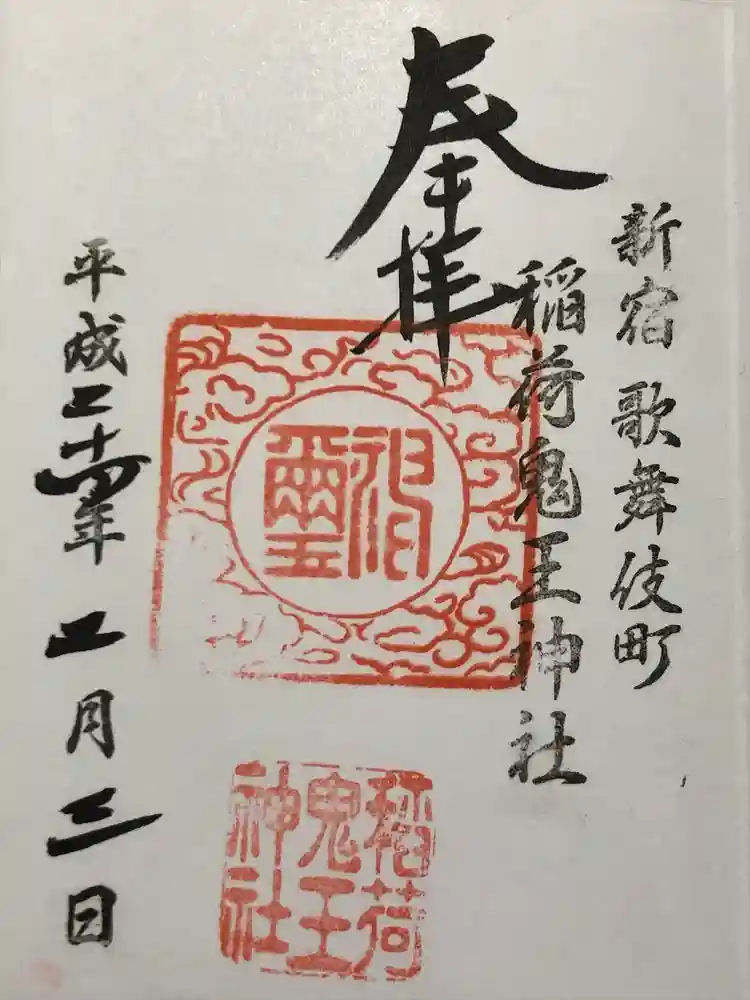 新宿 歌舞伎町
奉拝
稲荷鬼王神社
神璽
稲荷
鬼王
神社
平成二十四年 二月三日